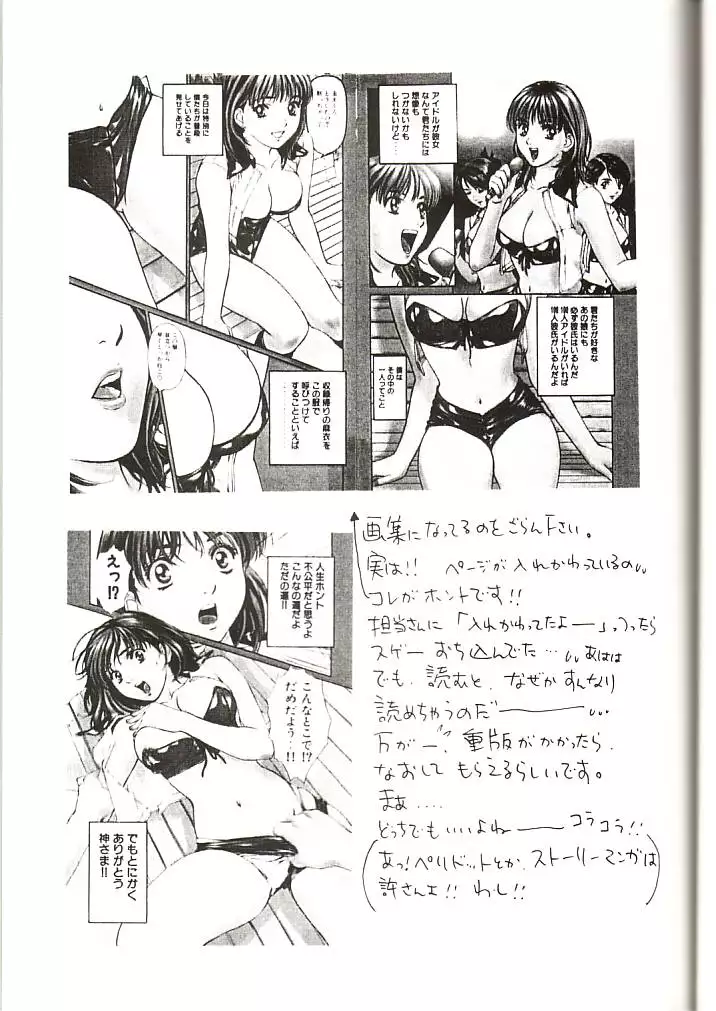 アイドルが彼女
なんて君たちには
想像も
つかないかも
しれないけど…
君たちが好きな
あの娘にも
必ず彼氏はいるんだ
アイドルがいれば
彼氏がいるんだよ
僕は
その中の
一人ってこと
今日は特別に
僕たちが普段
していることを
見せてあげる
収録帰りの麻衣を
この服で
呼びつけて
することといえば
えっ!?
人生ホント
不公平だと思うよ
こんなの運だよ
ただの運!!
こんなとこで!?
だめだよう…!!
でもとにかく
ありがとう
神さま!!
画集になってるのをごらん下さい。
実は!! ページが入れかわっているの
コレがホントです!!
担当さんに「入れかわってたよー」っつったら
スゲーおち込んでた… あはは
でも、読むと、なぜかすんなり
読めちゃうのだー
万が一、重版がかかったら、
なおしてもらえるらしいです。
まぁ….
どっちでもいいよねー コラコラ!!
(あっ!ペリドットとか、ストーリーマンガは
許さんよ!! わし!!)